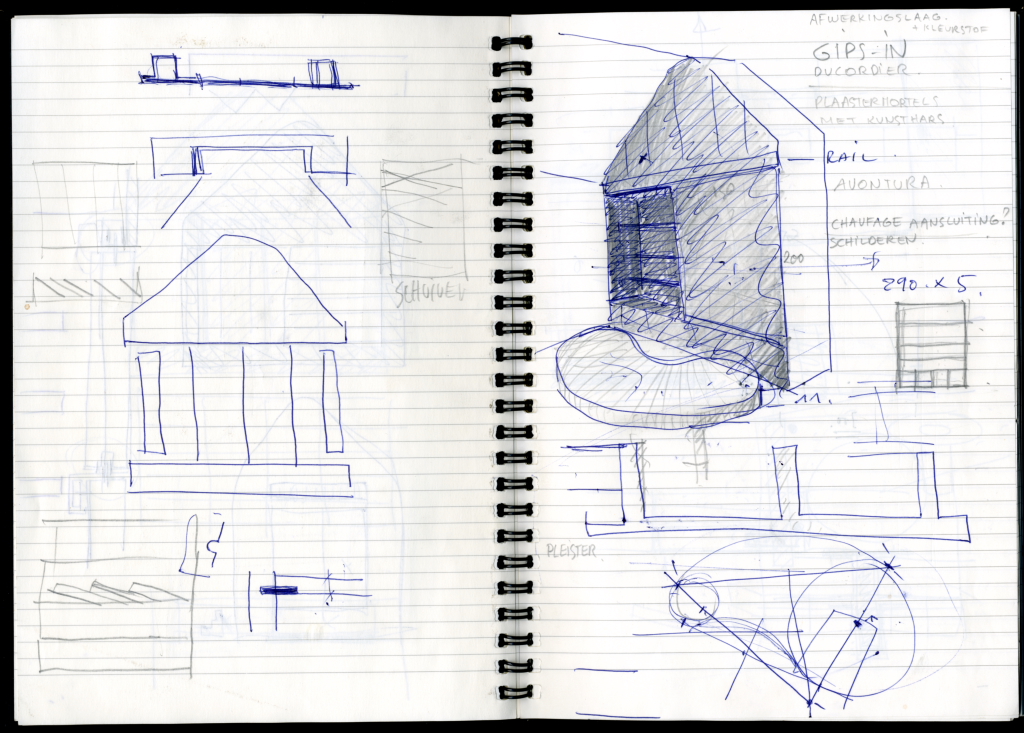 AFWERKINGSLAAG.
+ KLEURSTOF
GIPS-IN
DUCORDIER.
PLAASTERMORTELS
MET KUNSTHARS
RAIL
AVONTURA.
CHAUFAGE AANSLUITING?
SCHILDEREN.
200
290 x 5.
11.
PLEISTER